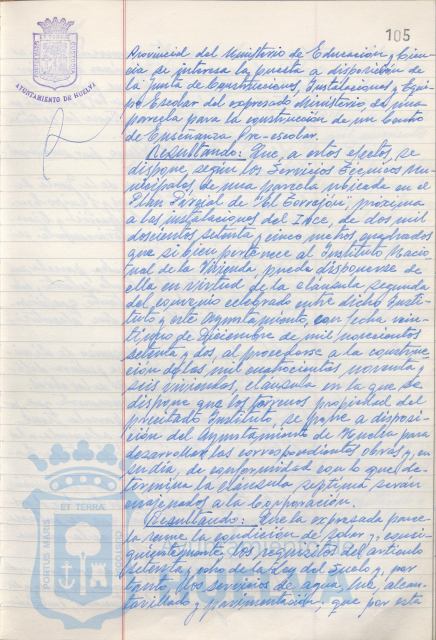 105
AYUNTAMIENTO DE HUELVA
Provincial del Ministerio de Educación y Cien-
cia se interesa la puesta a disposición de
la Junta de Construcciones, Instalaciones y Equi-
po Escolar del expresado Ministerio, de una
parcela para la construcción de un Centro
de Enseñanza Pre-escolar.
Resultando: Que, a estos efectos, se
dispone, según los Servicios Técnicos Mu-
nicipales, de una parcela ubicada en el
Plan Parcial de "El Torrejón", próxima
a las instalaciones del I.N.C.E., de dos mil
doscientos setenta y cinco metros cuadrados
que si bien pertenece al Instituto Nacio-
nal de la Vivienda, puede disponerse de
ella en virtud de la cláusula segunda
del convenio celebrado entre dicho Insti-
tuto y este Ayuntamiento, con fecha vein-
tiuno de Diciembre de mil novecientos
setenta y dos, al procederse a la construc-
ción de las mil cuatrocientas noventa y
seis viviendas, cláusula en la que se
dispone que los terrenos propiedad del
precitado Instituto, se pone a disposi-
ción del Ayuntamiento de Huelva para
desarrollar las correspondientes obras y, en
su día, de conformidad con lo que de-
termina la cláusula séptima serán
enajenados a la Corporación.
Resultando: Que la expresada parce-
la reune la condición de solar y, consi-
guientemente los requisitos del artículo
setenta y ocho de la Ley del Suelo y, por
tanto, los servicios de agua, luz, alcan-
tarillado y pavimentación, que por esta
PORTUS MARIS
ET TERRÆ
CUSTODIA